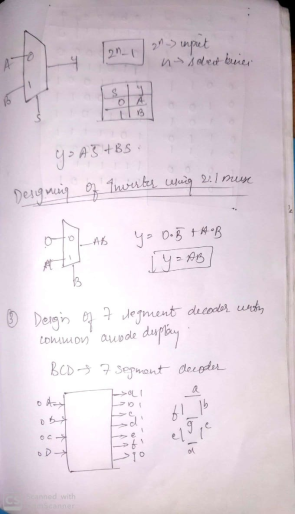 A 0 Y
B 1
S
2ⁿ-1
2ⁿ → input
n → select lines
S Y
0 A
1 B
Y = AS̅ + BS.
Designing of Inverter using 2:1 mux
0 0 AB
A 1
B
Y = 0·B̅ + A·B
Y = AB
③ Design of 7 segment decoder with
common anode display
BCD → 7 segment decoder
0 A a 1
0 B b 1
0 C c 1
0 D d 1
e 1
f 1
g 0
a
f b
g
e c
d